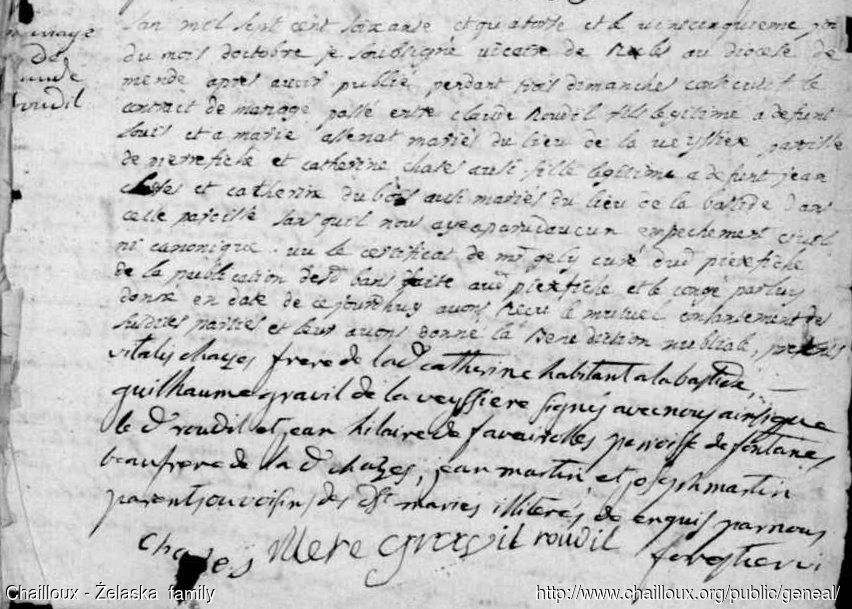 mariage
de
claude
roudil
Lan mil sept cent soixante et quatorse et le vintcinquieme jour
du mois doctobre je soubsigné vicaire de Rocles au diocese de
mende apres avoir publié pendant trois dimanches consecutifs le
contract de mariage passé entre claude Roudil fils legitime a defunt
louis et a marie assenat mariés du lieu de la veissiere parroisse
de pierrefiche et catherine chases aussi fille legitime a defunt jean
chases et catherine dubois aussi mariés du lieu de la bastide dans
cette paroisse sans quil nous aye aparu daucun empechement civil
ni canonique. vu le certificat de mr gely curé dud pierefiche
de la publication desd bans faite aud pierefiche et le congé par luy
donné en date de cejourdhuy avons Recu le mutuel consantement des
susdites parties et leur avons donné la Benediction nubtiale, presens
vitalis chazes frere de lad catherine habitant a la bastide,
guilhaume gravil de la veyssiere signés avec nous ainsi que
le dt roudil et jean hilaire de faveirolles parroisse de fontanes
beaufrere de la dte chazes, jean martin et joseph martin
parents ou voisins des dts maries illiteres de enquis par nous
chases gravil roudil
Chailloux - Żelaska family
http://www.chailloux.org/public/geneal/